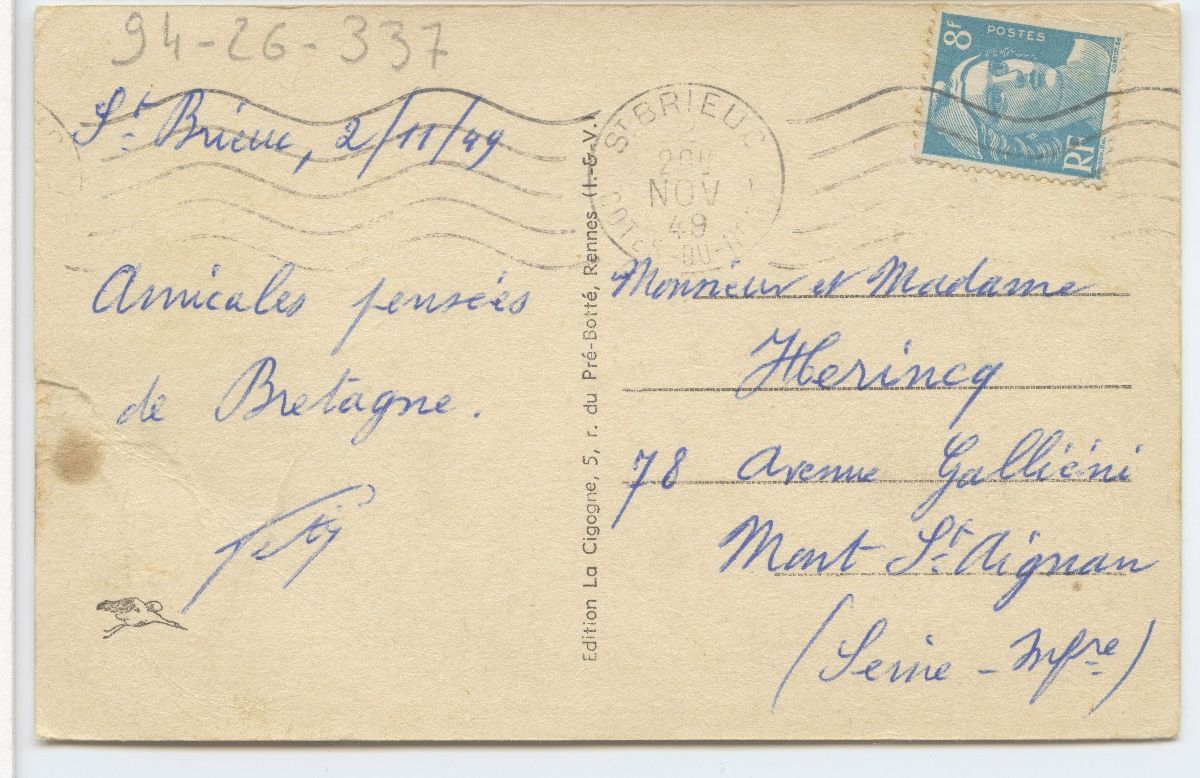 94-26-337
St Brieuc, 2/11/49
Amicales pensées
de Bretagne.
Edition La Cigogne, 5, r. du Pré-Botté, Rennes (I.-&-V.)
St BRIEUC
NOV
49
COTES-DU-N
8F
POSTES
RF
Monsieur et Madame
Herincq
78 Avenue Galliéni
Mont St Aignan
(Seine-Infre)